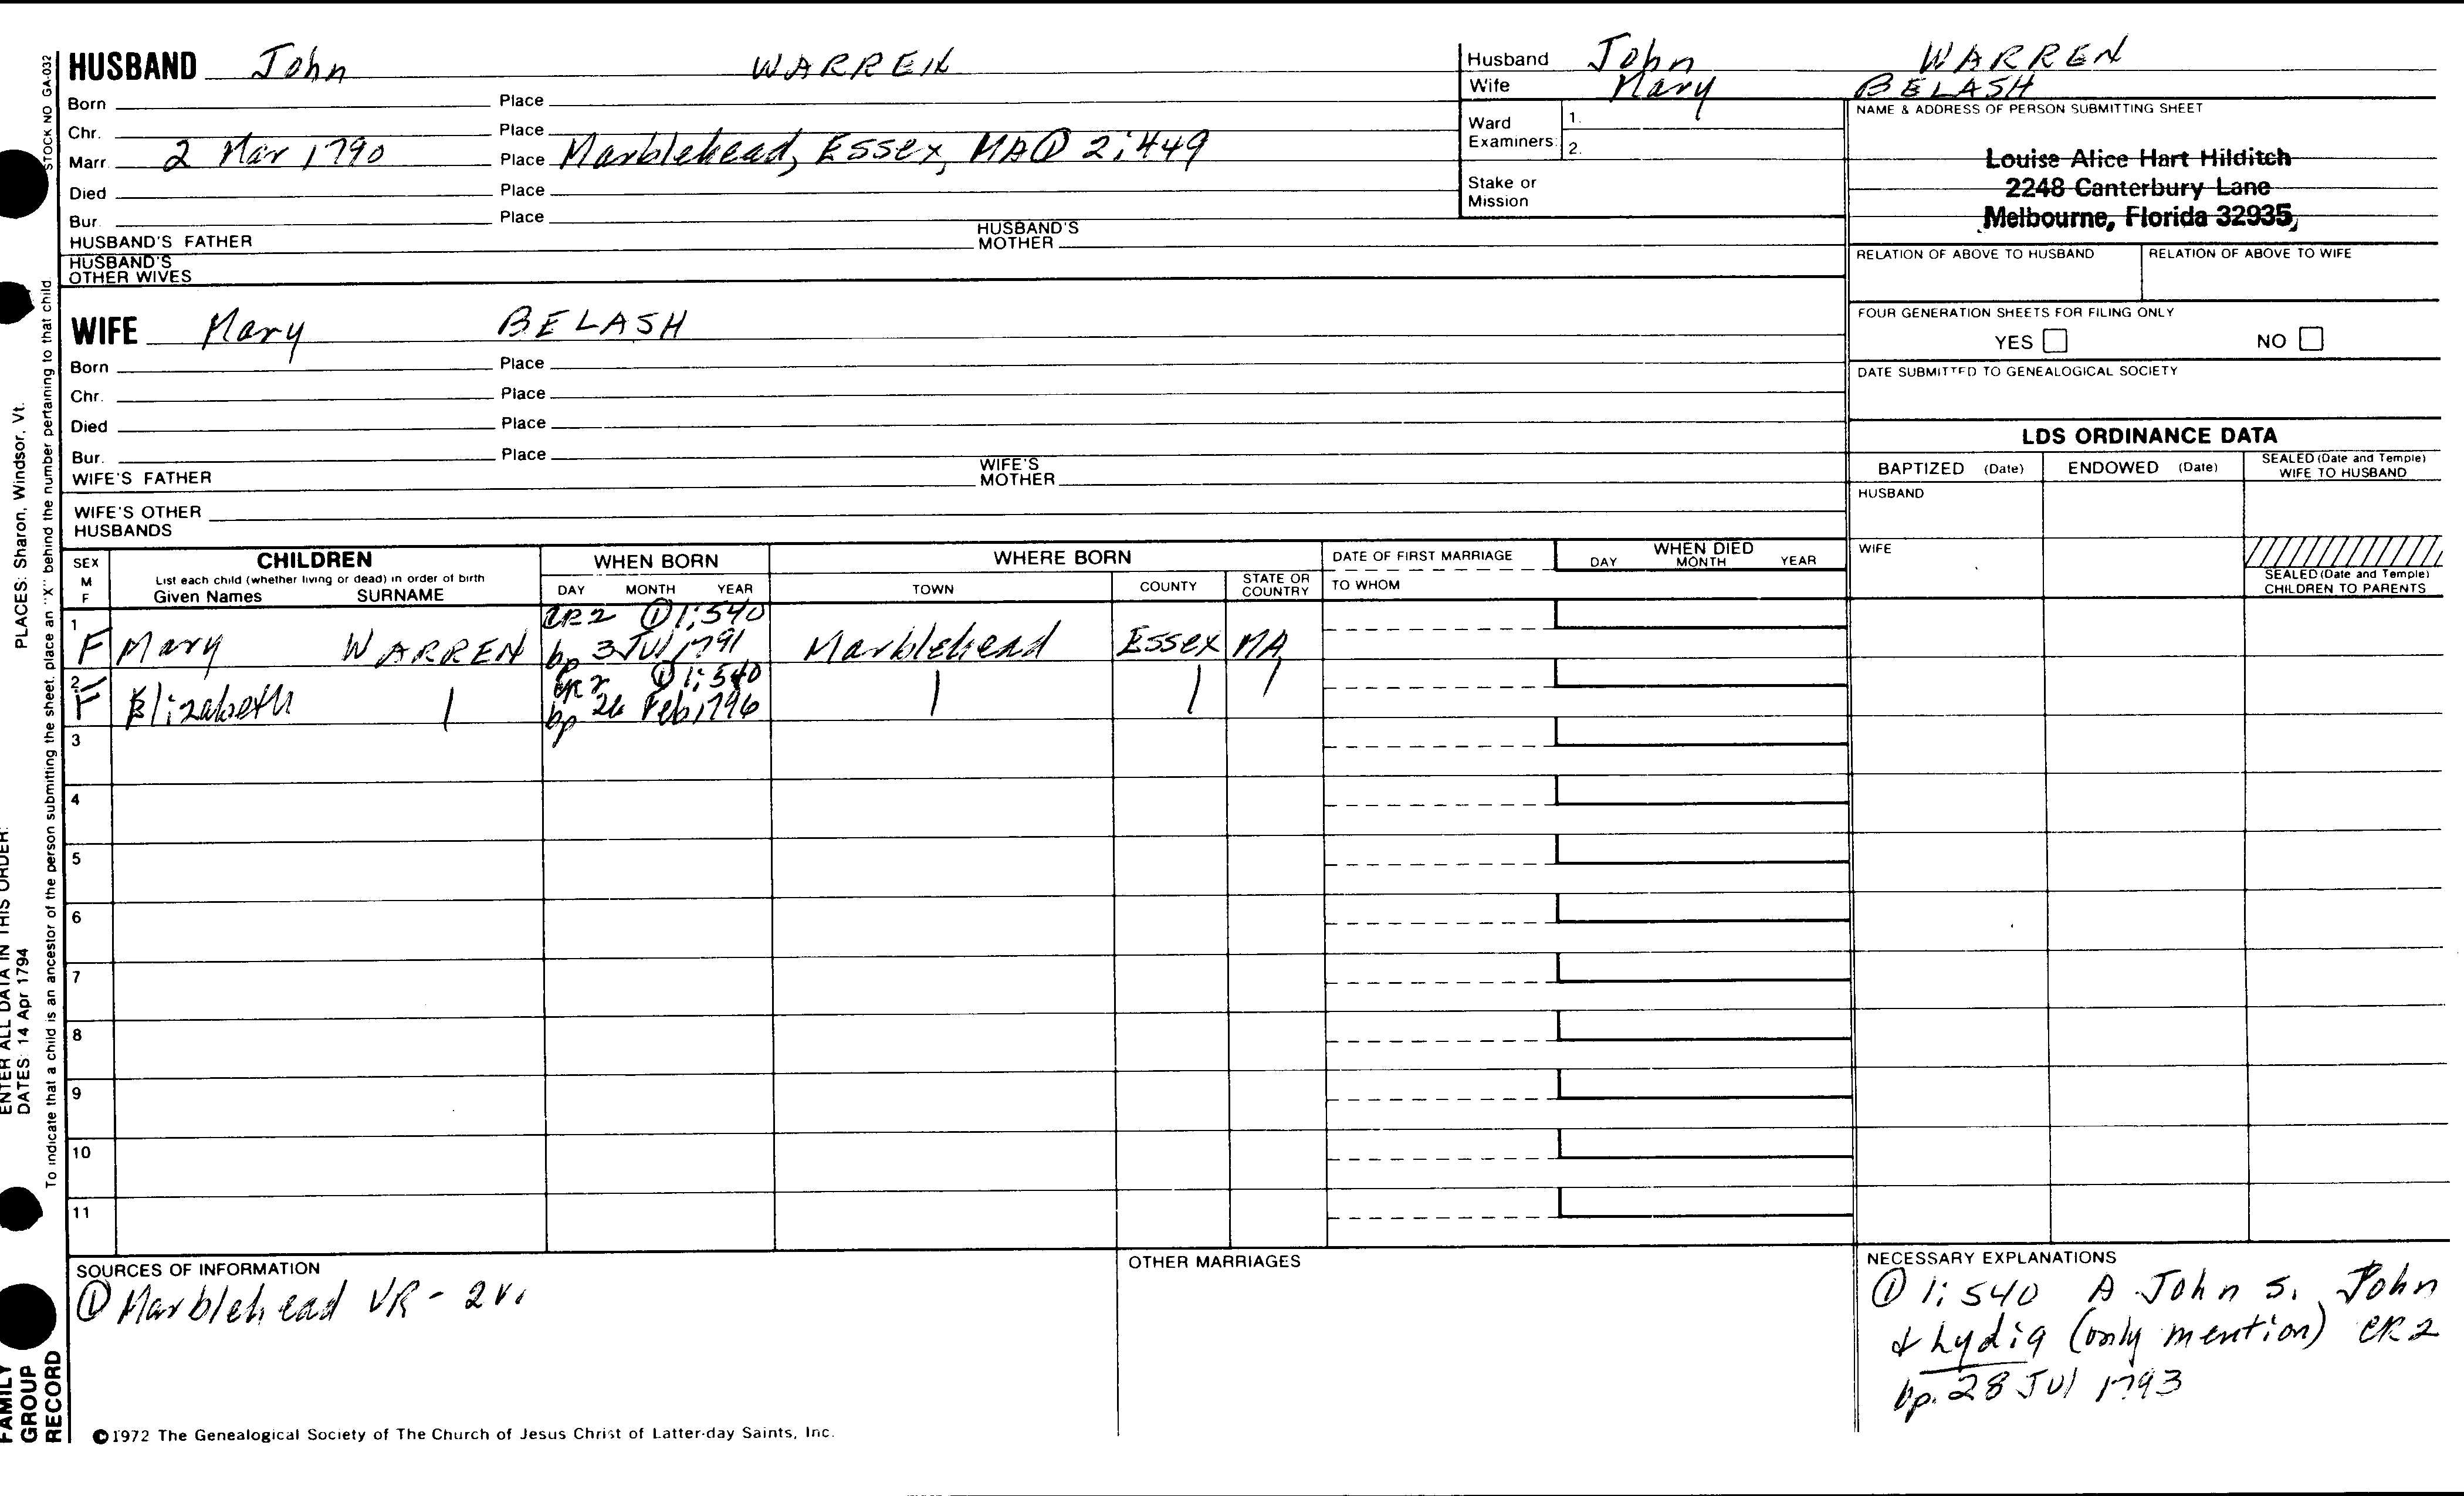 HUSBAND John WARREN
Born Place
Chr. Place
Marr. 2 Mar 1790 Place Marblehead, Essex, MA ① 2:449
Died Place
Bur. Place
HUSBAND'S FATHER HUSBAND'S MOTHER
HUSBAND'S OTHER WIVES
Husband John WARREN
Wife Mary BELASH
Ward Examiners: 1.
2.
Stake or Mission
NAME & ADDRESS OF PERSON SUBMITTING SHEET
Louise Alice Hart Hilditch
2248 Canterbury Lane
Melbourne, Florida 32935
RELATION OF ABOVE TO HUSBAND RELATION OF ABOVE TO WIFE
FOUR GENERATION SHEETS FOR FILING ONLY
YES NO
DATE SUBMITTED TO GENEALOGICAL SOCIETY
WIFE Mary BELASH
Born Place
Chr. Place
Died Place
Bur. Place
WIFE'S FATHER WIFE'S MOTHER
WIFE'S OTHER HUSBANDS
LDS ORDINANCE DATA
BAPTIZED (Date) ENDOWED (Date) SEALED (Date and Temple) WIFE TO HUSBAND
HUSBAND
WIFE
SEALED (Date and Temple) CHILDREN TO PARENTS
SEX M F
CHILDREN
List each child (whether living or dead) in order of birth
Given Names SURNAME
WHEN BORN
DAY MONTH YEAR
WHERE BORN
TOWN COUNTY STATE OR COUNTRY
DATE OF FIRST MARRIAGE
TO WHOM
WHEN DIED
DAY MONTH YEAR
CR2 ① 1:540
1 F Mary WARREN bp 3 Jul 1791 Marblehead Essex MA
CR2 ① 1:540
2 F Elizabeth | bp 26 Feb 1796 | | |
3
4
5
6
7
8
9
10
11
SOURCES OF INFORMATION
① Marblehead VR - 2v.
OTHER MARRIAGES
NECESSARY EXPLANATIONS
① 1:540 A John s. John
& Lydia (only mention) CR2
bp. 28 Jul 1793
©1972 The Genealogical Society of The Church of Jesus Christ of Latter-day Saints, Inc.
STOCK NO GA-032
To indicate that a child is an ancestor of the person submitting the sheet, place an "X" behind the number pertaining to that child.
PLACES: Sharon, Windsor, Vt.
ENTER ALL DATA IN THIS ORDER:
DATES: 14 Apr 1794
FAMILY
GROUP
RECORD